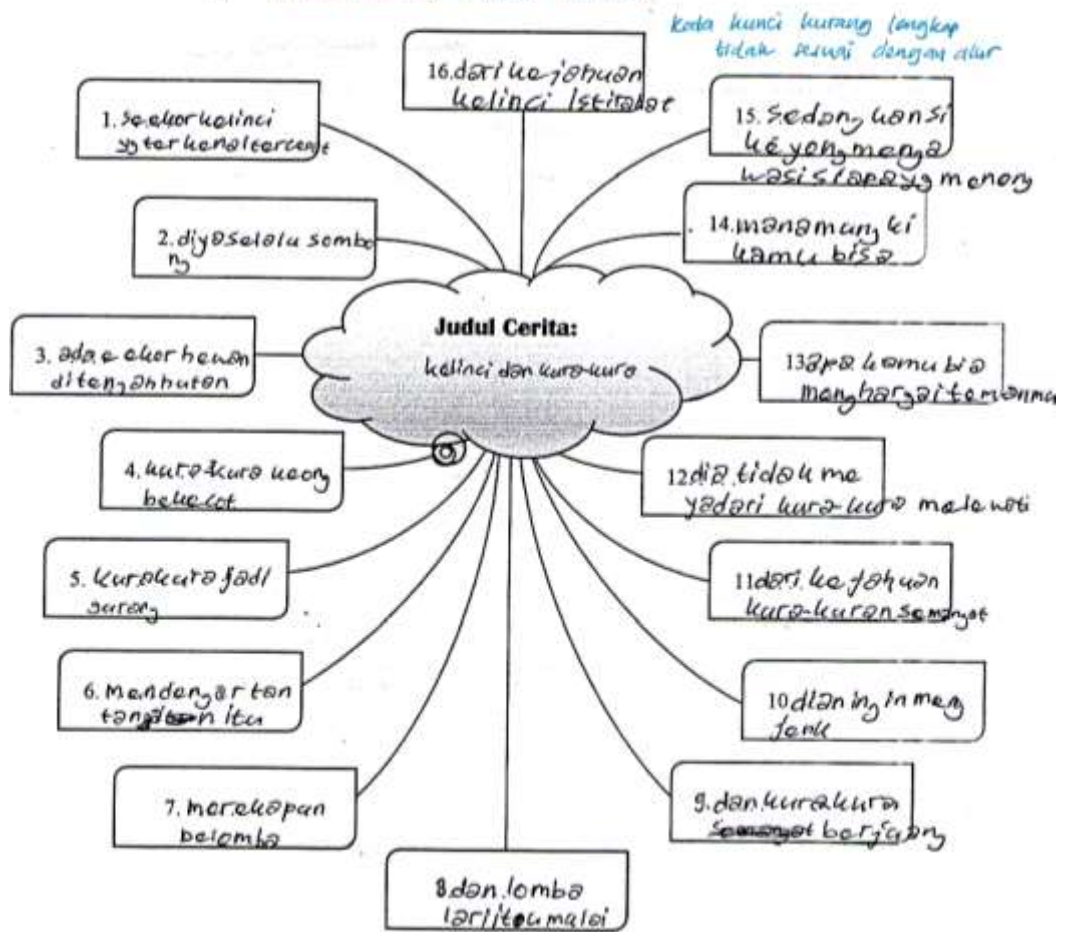 kata kunci kurang lengkap
tidak sesuai dengan alur
1. seekor kelinci
yg terkenal tercepat
2. diya selalu sombo
ng
3. ada e ekor hewan
ditengah hutan
4. kura-kura keong
bekecot
5. kurakura jadi
garang
6. mendengar tan
tangan itu
7. merekapun
belomba
8. dan lomba
lari itu mulai
9. dan kurakura
semangat berjuang
10 dia ningin meng
jenk
11 dari kejahuan
kura-kuran semangat
12 dia tidak me
yadari kura-kura melewati
13 apa kamu bia
menghargai temanmu
14. mana mungki
kamu bisa
15. sedang kansi
keyong menga
wasi siapa yg menang
16. dari kejahuan
kelinci istirahat
Judul Cerita:
kelinci dan kura-kura